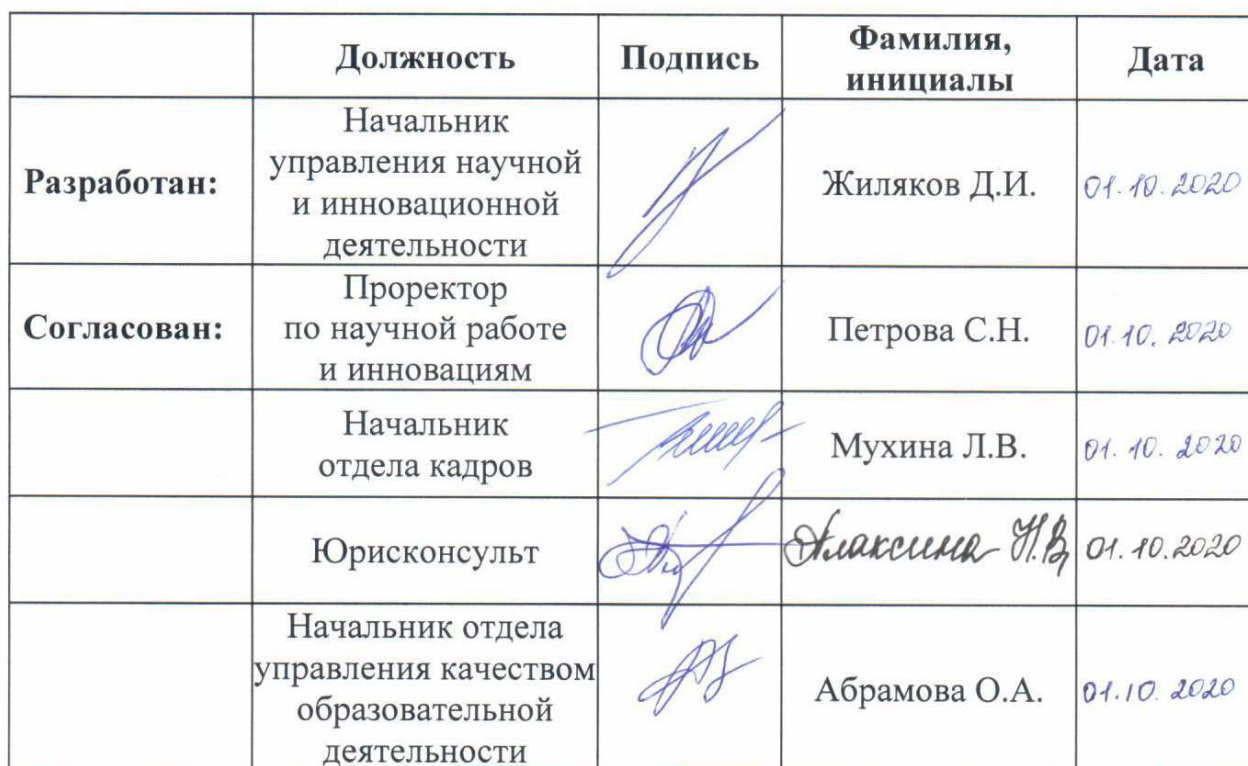 Должность Подпись Фамилия, инициалы Дата
Разработан:
Начальник
управления научной
и инновационной
деятельности
Жиляков Д.И. 01.10.2020
Согласован:
Проректор
по научной работе
и инновациям
Петрова С.Н. 01.10.2020
Начальник
отдела кадров
Мухина Л.В. 01.10.2020
Юрисконсульт
Н.В. 01.10.2020
Начальник отдела
управления качеством
образовательной
деятельности
Абрамова О.А. 01.10.2020